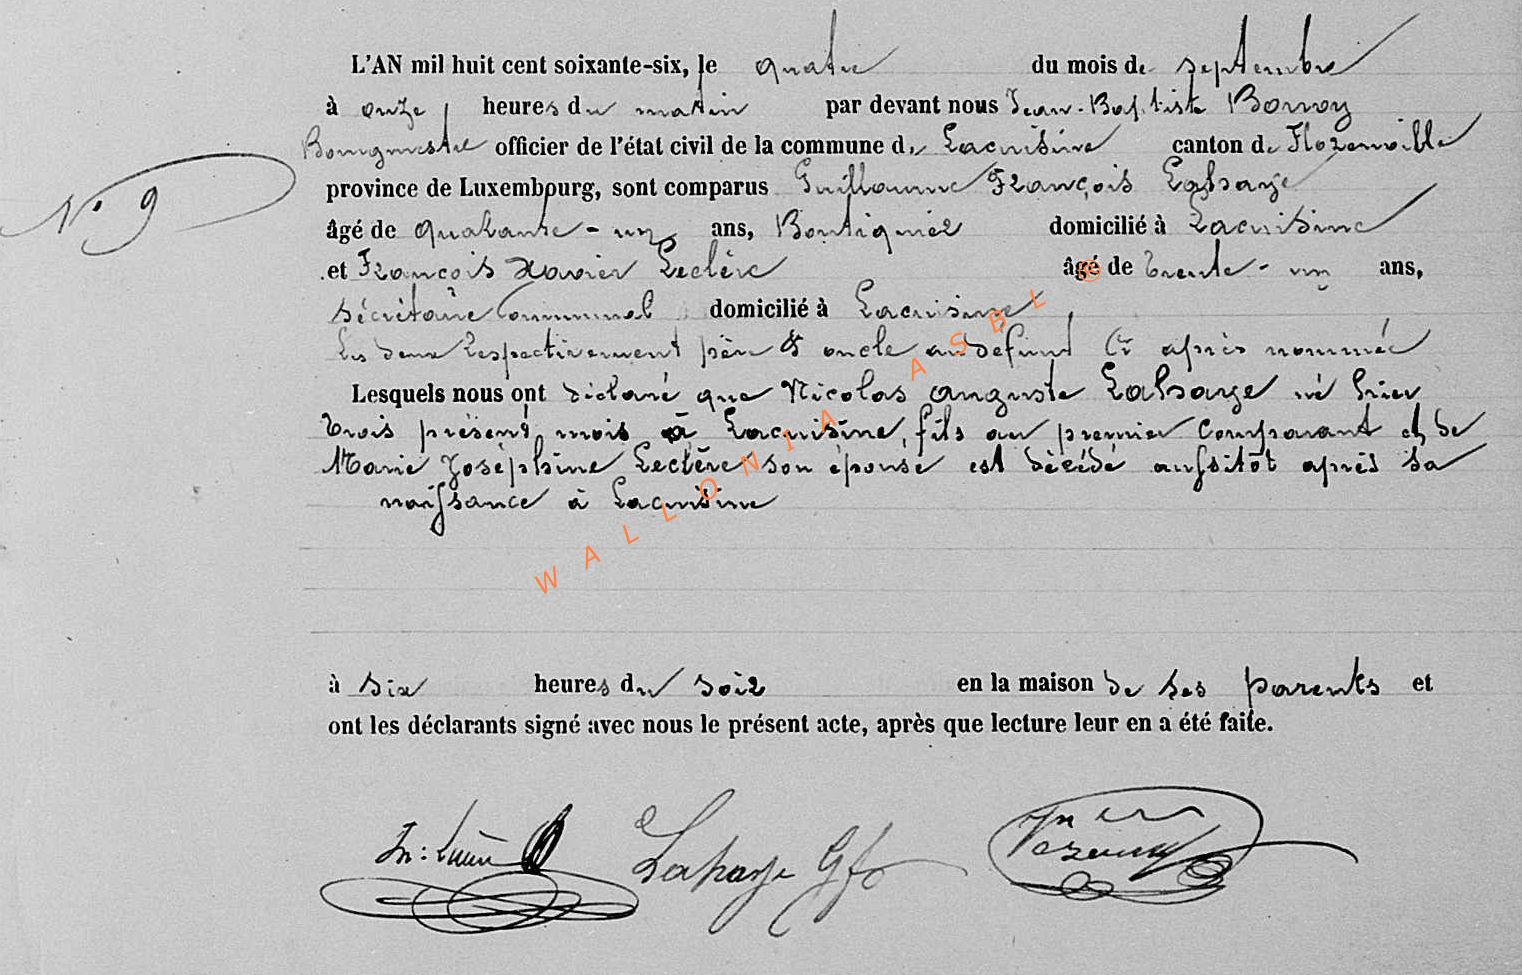 L'AN mil huit cent soixante-six, le quatre du mois de septembre
à onze heures du matin par devant nous Jean-Baptiste
Bourgmestre officier de l'état civil de la commune de Lacuisine canton de Florenville
N° 9
province de Luxembourg, sont comparus Guillaume François Lahaye
âgé de quarante-un ans, Boutiquier domicilié à Lacuisine
et François Xavier Leclère âgé de trente-un ans,
sécrétaire Communal domicilié à Lacuisine
Les deux respectivement père & oncle au défunt ci après nommé
Lesquels nous ont déclaré que Nicolas auguste Lahaye né hier
trois présent mois à Lacuisine, fils au premier comparant et de
Marie Joséphine Leclère son épouse est décédé aussitôt après sa
naissance à Lacuisine
WALLONIA ASBL ©
à six heures du soir en la maison de ses parents et
ont les déclarants signé avec nous le présent acte, après que lecture leur en a été faite.
Lahaye Gfs